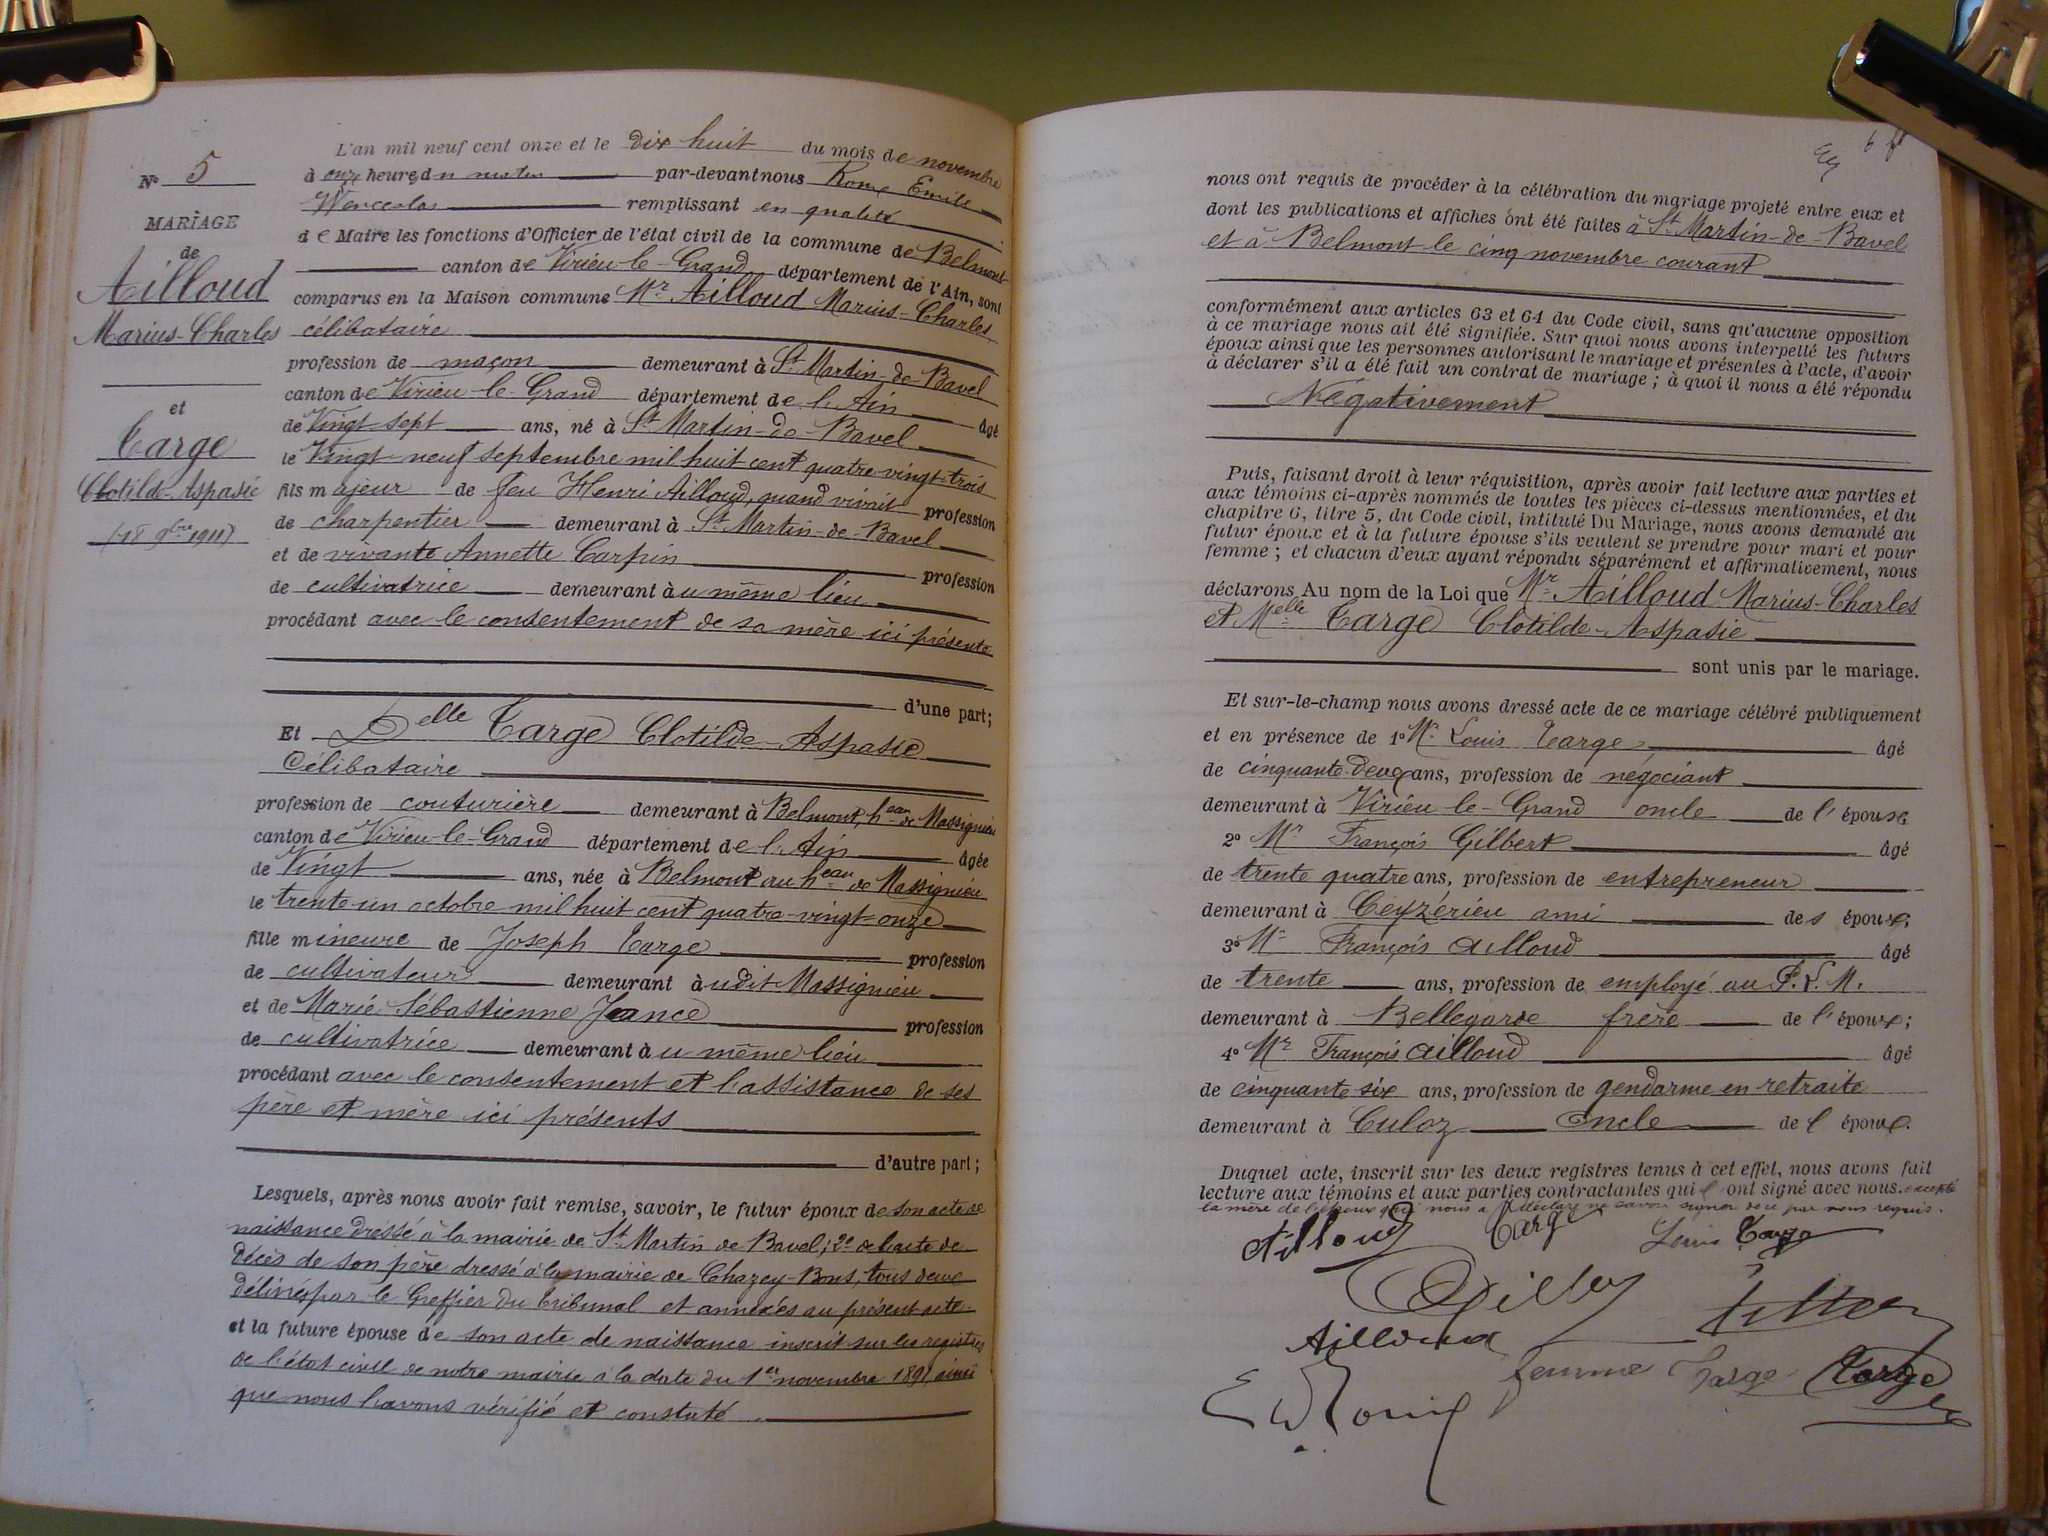 N° 5
MARIAGE
de
Ailloud
Marius-Charles
et
Targe
Clotilde-Aspasie
(18 9bre 1911)
L'an mil neuf cent onze et le dix huit du mois de novembre
à onze heures du matin par-devant nous Rome Emile
Wenceslas remplissant en qualité
de Maire les fonctions d'Officier de l'état civil de la commune de Belmont
canton de Virieu-le-Grand département de l'Ain, sont
comparus en la Maison commune Mr Ailloud Marius-Charles
célibataire
profession de maçon demeurant à St Martin-de-Bavel
canton de Virieu-le-Grand département de l'Ain âgé
de Vingt sept ans, né à St Martin-de-Bavel
le Vingt neuf septembre mil huit cent quatre vingt-trois
fils majeur de feu Henri Ailloud, quand vivait profession
de charpentier demeurant à St Martin-de-Bavel
et de vivante Annette Carpin profession
de cultivatrice demeurant au même lieu
procédant avec le consentement de sa mère ici présente
d'une part;
Et Delle Targe Clotilde-Aspasie
Célibataire
profession de couturière demeurant à Belmont, heau de Massignieu
canton de Virieu-le-Grand département de l'Ain âgée
de Vingt ans, née à Belmont au heau de Massignieu
le trente un octobre mil huit cent quatre-vingt-onze
fille mineure de Joseph Targe profession
de cultivateur demeurant audit Massignieu
et de Marie Sébastienne Jeance profession
de cultivatrice demeurant au même lieu
procédant avec le consentement et l'assistance de ses
père et mère ici présents
d'autre part;
Lesquels, après nous avoir fait remise, savoir, le futur époux de son acte de
naissance dressé à la mairie de St Martin de Bavel; 2° de l'acte de
décès de son père dressé à la mairie de Chazey-Bons, tous deux
délivrés par le Greffier du Tribunal et annexés au présent acte
et la future épouse de son acte de naissance inscrit sur les registres
de l'état civil de notre mairie à la date du 1er novembre 1891 ainsi
que nous l'avons vérifié et constaté
6
nous ont requis de procéder à la célébration du mariage projeté entre eux et
dont les publications et affiches ont été faites à St Martin-de-Bavel
et à Belmont le cinq novembre courant
conformément aux articles 63 et 64 du Code civil, sans qu'aucune opposition
à ce mariage nous ait été signifiée. Sur quoi nous avons interpellé les futurs
époux ainsi que les personnes autorisant le mariage et présentes à l'acte, d'avoir
à déclarer s'il a été fait un contrat de mariage; à quoi il nous a été répondu
Négativement
Puis, faisant droit à leur réquisition, après avoir fait lecture aux parties et
aux témoins ci-après nommés de toutes les pièces ci-dessus mentionnées, et du
chapitre 6, titre 5, du Code civil, intitulé Du Mariage, nous avons demandé au
futur époux et à la future épouse s'ils veulent se prendre pour mari et pour
femme; et chacun d'eux ayant répondu séparément et affirmativement, nous
déclarons Au nom de la Loi que Mr Ailloud Marius-Charles
et Melle Targe Clotilde-Aspasie
sont unis par le mariage.
Et sur-le-champ nous avons dressé acte de ce mariage célébré publiquement
et en présence de 1° Mr Louis Targe âgé
de cinquante-deux ans, profession de négociant
demeurant à Virieu-le-Grand oncle de l'épouse
2° Mr François Gilbert âgé
de trente quatre ans, profession de entrepreneur
demeurant à Ceyzérieu ami des époux;
3° Mr François Ailloud âgé
de trente ans, profession de employé au P.L.M.
demeurant à Bellegarde frère de l'époux;
4° Mr François Ailloud âgé
de cinquante six ans, profession de gendarme en retraite
demeurant à Culoz Oncle de l'époux.
Duquel acte, inscrit sur les deux registres tenus à cet effet, nous avons fait
lecture aux témoins et aux parties contractantes qui ont signé avec nous. excepté
la mère de l'époux qui nous a déclaré ne savoir signer de ce par nous requis.
Ailloud Targe Louis Targe
Ailloud
femme Targe Targe